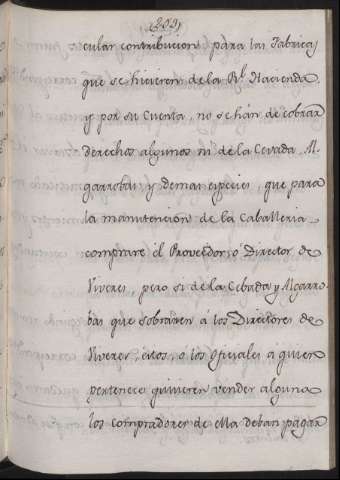 (203)
cular contribucion para las Fabricas
que se hicieren de la Rl. Hacienda
y por su Cuenta, no se hán de cobrar
derechos algunos ni de la Cevada Al
garrobas, y demas especies, que para
la manutencion de la Caballeria
comprare el Proveedor, o Director de
Viveres, pero si de la Cebada y Algarro
bas que sobraren á los Directores de
Viveres, estos, o los oficiales á quien
pertenece quisieren vender alguna
los compradores de ella deban pagar